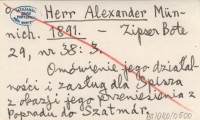 Herr Alexander Mün-
nich. 1891. – Zipser Bote
29, nr 38: 3.
Omówienie jego działal-
ności i zasług dla Spisza
z okazji jego przeniesienia z
Popradu do Szatmár.